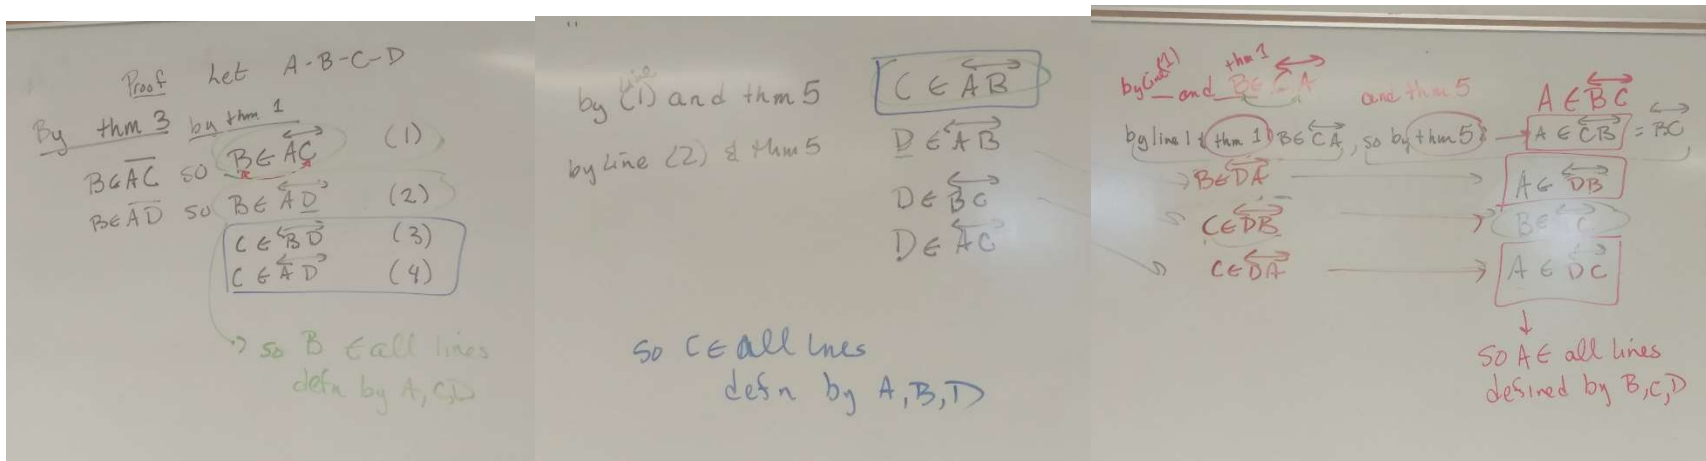 Proof Let A-B-C-D
By thm 3 by thm 1
B∈AC so B∈AC (1)
B∈AD so B∈AD (2)
C∈BD (3)
C∈AD (4)
so B ∈ all lines
defn by A, C, D
line
by (1) and thm 5 C∈AB
D∈AB
by line (2) & thm 5
D∈BC
D∈AC
so C∈ all lnes
defn by A, B, D
by line (1) and thm 1 B∈CA and thm 5 A∈BC
by line 1 & thm 1 B∈CA, so by thm 5 A∈CB = BC
B∈DA A∈DB
C∈DB B∈ C
C∈DA A∈DC
so A∈ all lines
defined by B, C, D